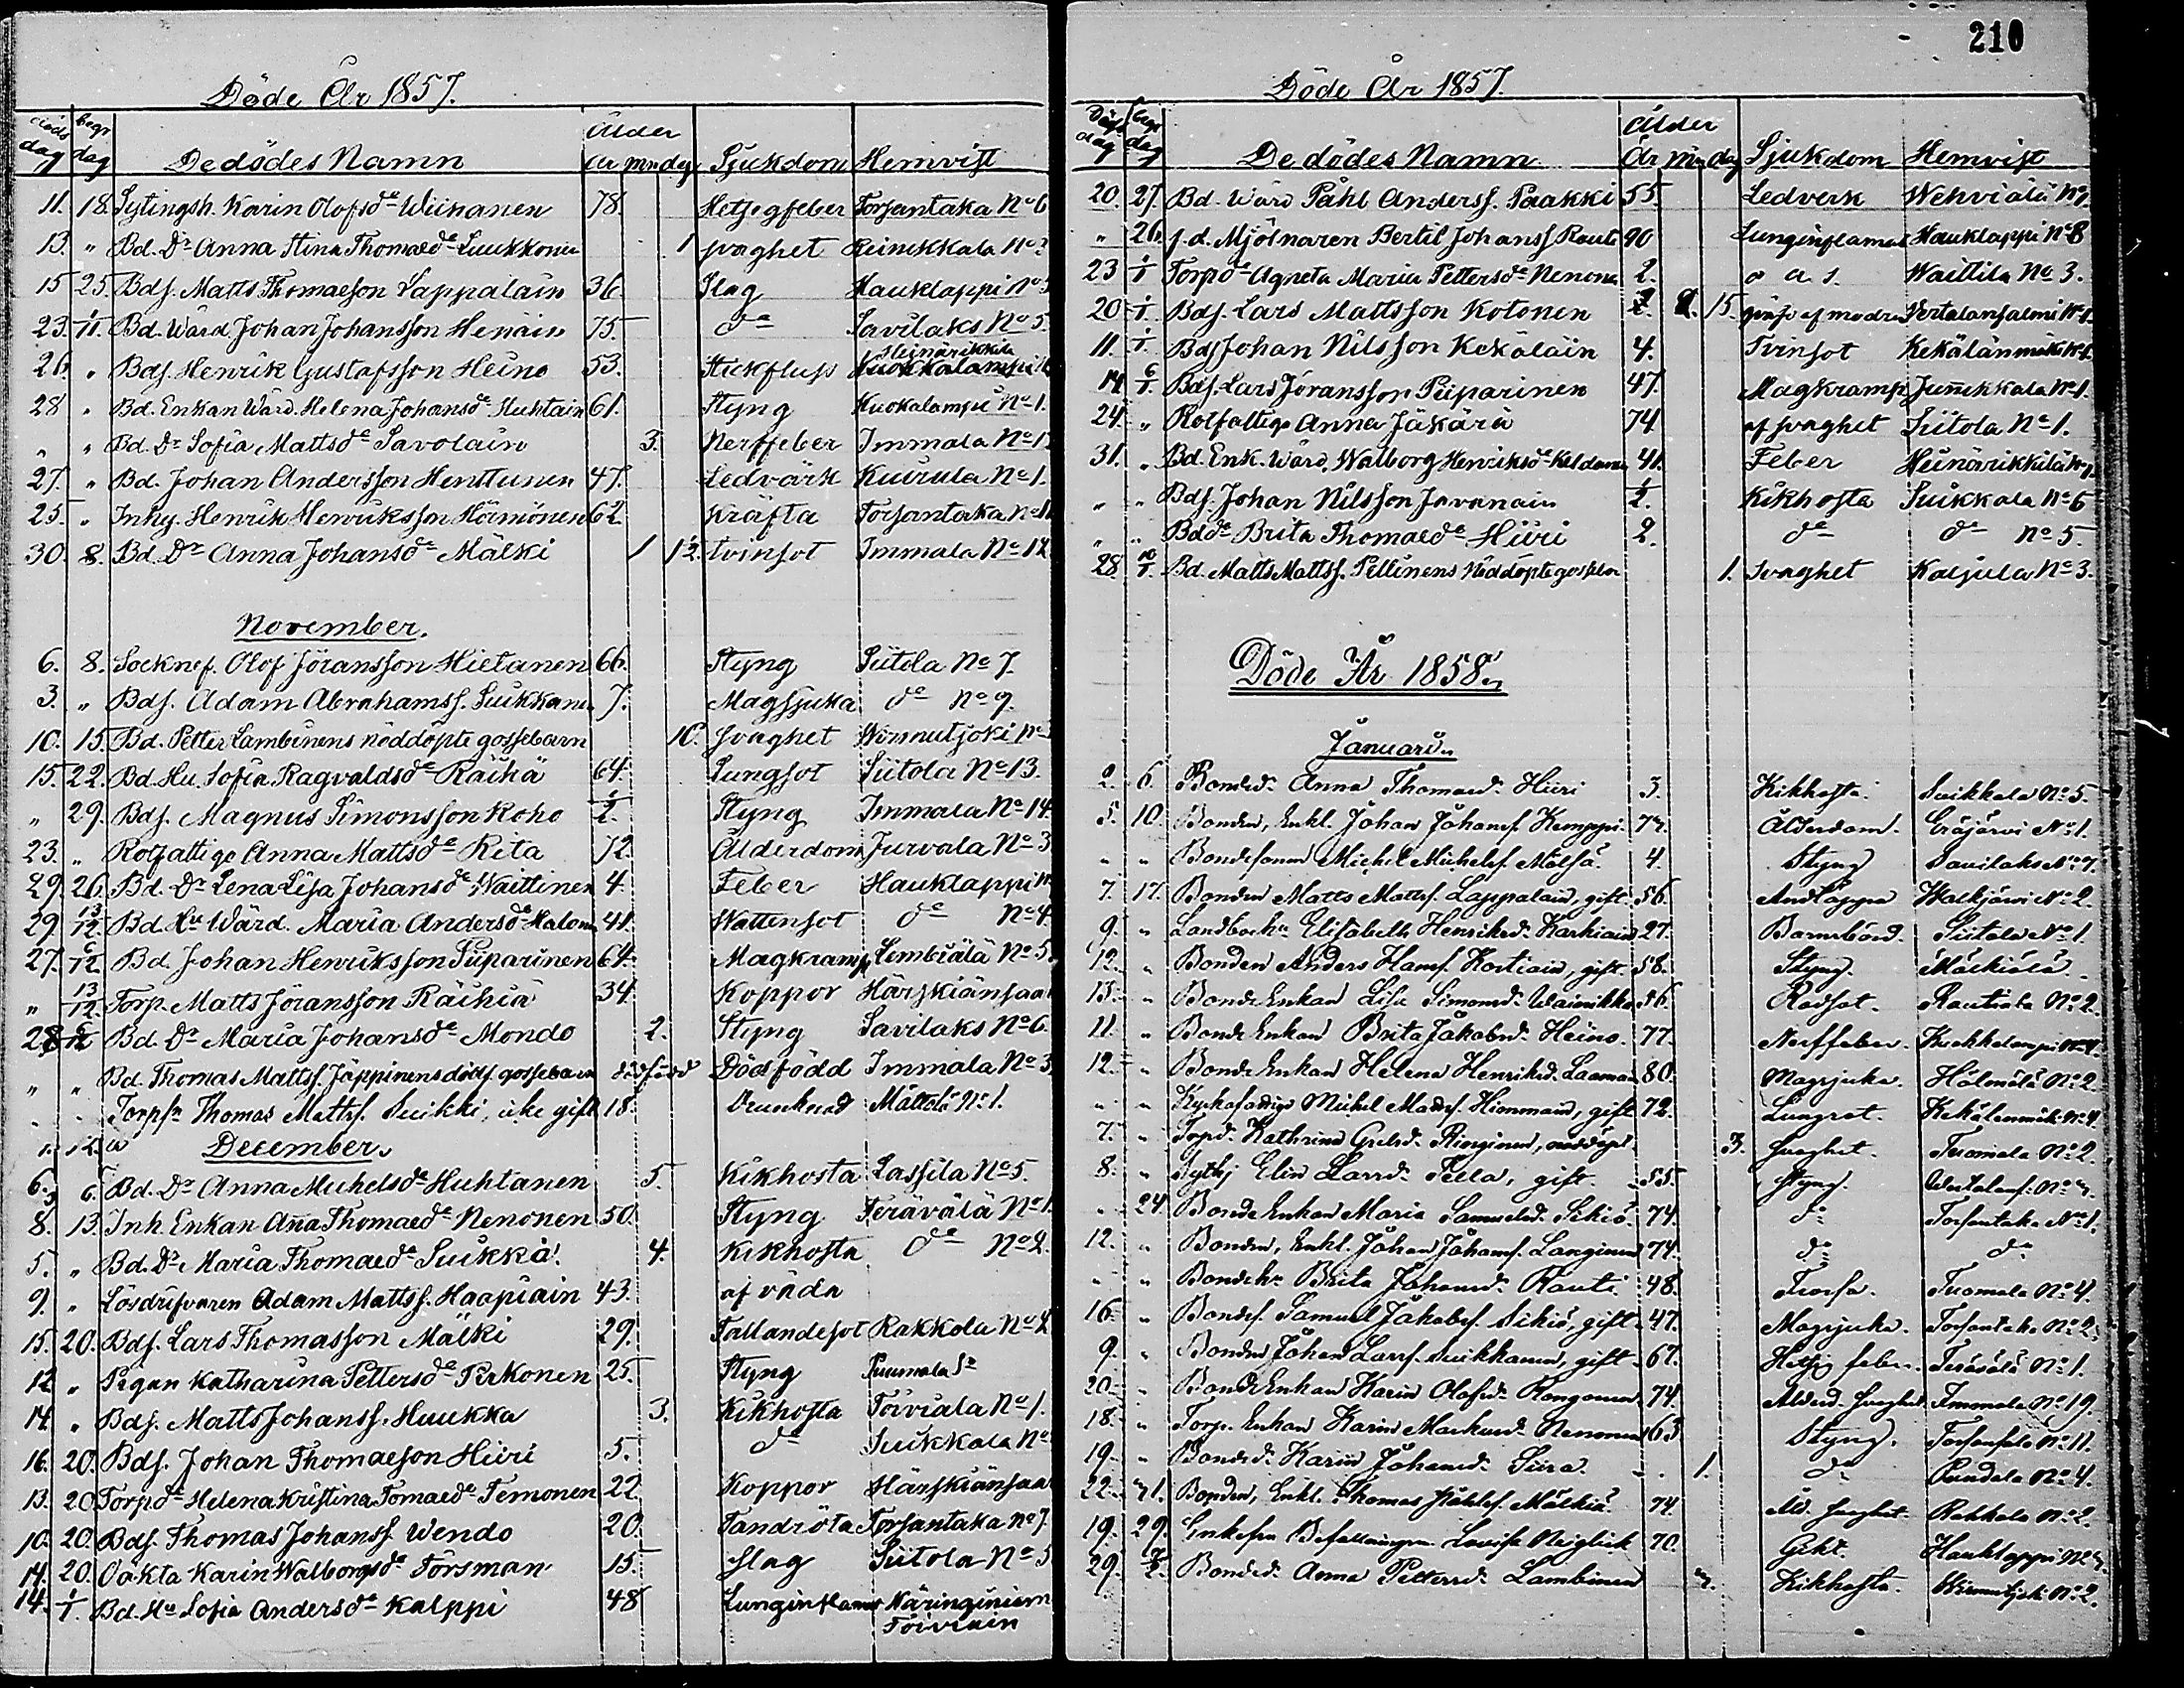 210
Döde År 1857.
döds dag begr dag De dödes Namn Ålder år mn dag Sjukdom Hemvist
11. 18. Sytingsh. Karin Olofsd:r Wiihanen 78. Hetsigfeber Torsantaka No 6
13. " Bd. Dr Anna Stina Thomaed:r Luukkonen 1 svaghet Reinikkala No
15 25. Bds. Matts Thomaeson Lappalain 36. Slag Hauklappi No
23. 1/11. Bd. Wärd Johan Johansson Henäin 75. do Savilaks No 5
26. " Bds. Henrik Gustafsson Heino 53. Stickfluss Heinärikkilä
28 " Bd. Enkan Wärd. Helena Johansd:r Huhtain 61. Styng Kuokalampi No 1.
" " Bd. Dr Sofia Mattsd:r Savolain 3. Nerffeber Immala No 1
27. " Bd. Johan Andersson Henttunen 47. Ledvärk Kuurula No 1.
25. " Inhy. Henrik Henriksson Hämönen 62 kräfta Torsantaka No
30. 8. Bd. Dr Anna Johansd:r Mälki 1 12. tvinsot Immala No 12
November.
6. 8. Socknef. Olof Jöransson Hietanen 66. Styng Siitola No 7.
3. " Bds. Adam Abrahamss. Suikkanen 7. Magsjuka do No 9.
10. 15. Bd. Petter Lambinens nöddöpte gossebarn 10. svaghet
15. 22. Bd. Hu. Sofia Ragvaldsd:r Räihä 64. Lungsot Siitola No 13.
" 29. Bds. Magnus Simonsson Koho 1/2. Styng Immala No 14.
23. " Rotfattige Anna Mattsd:r Rita 72. Ålderdom Jurvala No 3
29. 26. Bd. Dr Lena Lisa Johansd:r Waittinen 4. Feber Hauklappi
29 13/12. Bd. Hu Wärd. Maria Andersd:r Halonen 41. Wattensot do No 4
27. 6/12 Bd. Johan Henriksson Piiparinen 64. Magkramp Lembiälä No 5.
" 13/12 Torp. Matts Jöransson Räihiä 34. Koppor Härskiänsaari
28 Bd. Dr Maria Johansd:r Mondo 2. Styng Savilaks No 6.
" " Bd. Thomas Mattss. Jäppinens dödf. gossebarn dödfödd Dödfödd Immala No 3
" " Torpsn Thomas Mattss. Suikki, icke gift 18. Drunknad Mättölä No 1.
December.
6. 6. Bd. Dr Anna Michelsd:r Huhtanen 5. Kikhosta Lassila No 5.
8. 13. Inh. Enkan Anna Thomaed:r Nenonen 50. Styng Terävälä No 1.
5. " Bd. Dr Maria Thomaed:r Suikki 4. Kikhosta do No 2.
9. " Lösdrifvaren Adam Mattss. Haapiain 43. af våda
15. 20. Bds. Lars Thomasson Mälki 29. Fallandesot Rakkola No 2
12 " Pigan Katharina Pettersd:r Pirkonen 25. Styng Puumala Sn
14. " Bds. Matts Johanss. Huukka 3. Kikhosta Toiviala No 1.
16. 20. Bds. Johan Thomaeson Hiiri 5. do Suikkala No
13. 20. Torpd:r Helena Kristina Tomaed:r Temonen 22 Koppor Härskiänsaari
10. 20. Bds. Thomas Johanss. Wendo 20. Tandröta Torsantaka No 7.
14. 20. Oäkta Karin Walborgsd:r Forsman 15. Slag Siitola No 5
14. 1/1. Bd. Hu Sofia Andersd:r Kalppi 48 Lunginflamat Käringiniem Toiviain
Döde År 1857.
Döds dag begr dag De dödes Namn Ålder År Mn dag Sjukdom Hemvist
20. 27. Bd. Wärd Påhl Anderss. Paakki 55. Ledverk Wehviälä No
" 26. f.d. Mjölnaren Bertil Johanss Rauti 90 Lunginflamat Hauklappi No 8
23 1/1 Torpd:r Agneta Maria Pettersd:r Nenonen 2. Waittila No 3.
20 1/1. Bds. Lars Mattsson Kotonen 15. Vertalansalmi No 1.
11. 1/1. Bds Johan Nilsson Kekäläin 4. Tvinsot Kekälänmäki No
14. 6/1. Bds. Lars Jöransson Piiparinen 47. Magkramp Junikkala No 1.
24. " Rotfattige Anna Jäkärä 74. af svaghet Siitola No 1.
31. " Bd. Enk. Wärd. Walborg Henriksd:r 41. Feber Heinärikkilä No
" " Bds. Johan Nilsson Javanain 1/2. Kikhosta Suikkala No 6
" " Bd d:r Brita Thomaed:r Hiiri 2. do do No 5.
28. 10/1. Bd. Matts Mattss. Pellinens Nöddöpte gossebarn 1. Svaghet Kaljula No 3.
Döde År 1858.
Januari.
2. 6. Bonded:r Anna Thomasd:r Hiiri 3. Kikhosta. Suikkala No 5.
5. 10. Bonden, Enkl. Johan Johanss. Kemppi. 77. Ålderdom. Eräjärvi No 1.
" " Bondesonen Michel Michelss. Mälsä 4. Styng Savilaks No 7.
7. 17. Bonden Matts Mattss. Lappalain, gift. 56. Andtäppa No 2.
9. " Landbohu Elisabeth Henriksd:r Karhiain 27. Barnsbörd. Siitola No 1.
12. " Bonden Anders Hanss. Kostiain, gift. 58. Styng. Mälkiälä
13. " Bonde Enkan Lisa Simonsd:r Wainikka 56. Rödsot. Rautiala No 2.
11. " Bonde Enkan Brita Jakobsd:r Heino. 77. Nerffeber.
12. " Bonde Enkan Helena Henriksd:r Laaman 80. Magsjuka. No 2.
" " Kyrkofattige Michel Mattss. Himmain, gift 72. Lungsot. Kekälenmäki No 4.
7. " Torpd:r Kathrina nöddöpt 3. Svaghet. Tuomala No 2.
8. " Elin Larsd:r gift. 55. Styng.
" 24 Bonde Enkan Maria Samuelsd:r Sikiö 74. do Torsantaka No 1.
12. " Bonden, Enkl. Johan Johanss. Langinen 74. do do
" " Bondehu Brita Johansd:r Rauti 48. Tuomala No 4.
16. " Bondes. Samuel Jakobss. Sikiö, gift. 47. Magsjuka. Torsantaka No 2.
9. " Bonden Johan Larss. Suikkanen, gift. 67. Hetsig feber. Terävälä No 1.
20. " Bonde Enkan Karin Olofsd:r Rongonen 74. Ålderd. svaghet Immala No 19.
18. " Torp. Enkan Karin Markusd:r Nenonen 63 Styng. No 11.
19. " Bonded:r Karin Johansd:r Siira. 1. do Pundala No 4.
22. Bonden, Enkl. Thomas Påhlss. Mälkiä 74 Åld. svaghet. Rakkola No 2.
19. 29. Enkefru Lovisa Neiglick 70. Gikt. Hauklappi
29. 7/2. Bonded:r Anna Pettersd:r Lambinen 7. Kikhosta. No 2.